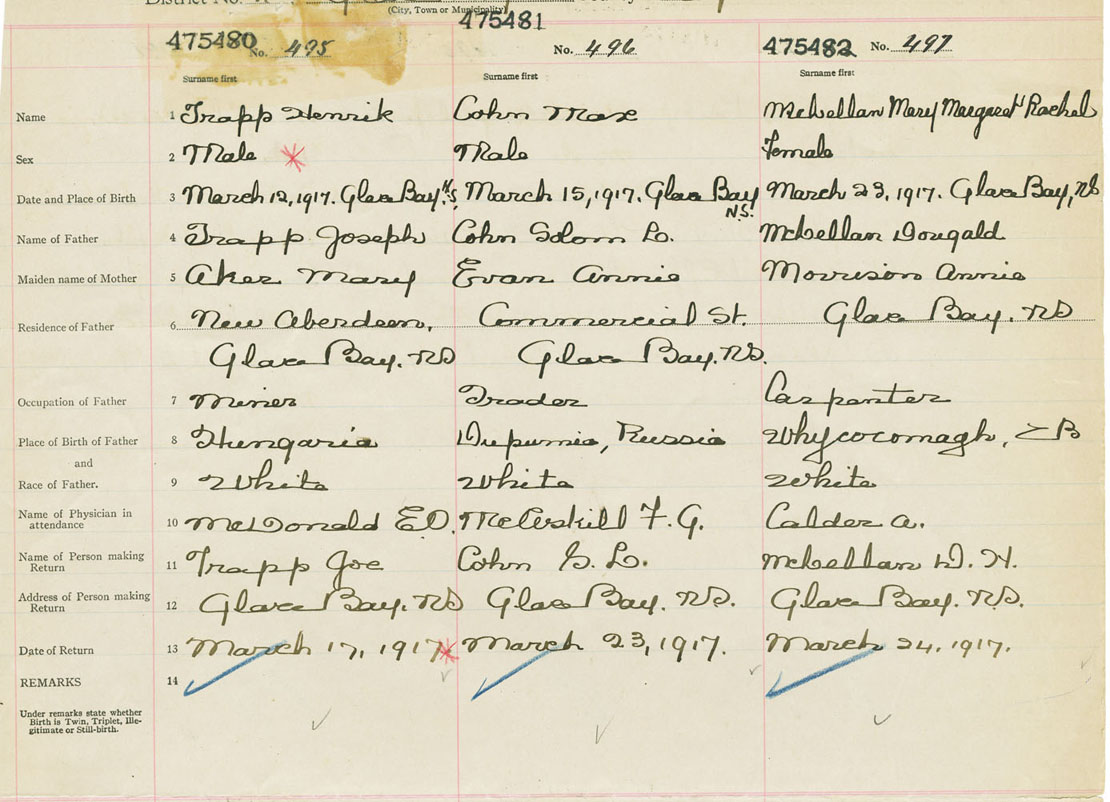 District No.
(City, Town or Municipality)
475480 No. 495
475481 No. 496
475482 No. 497
Surname first Surname first Surname first
Name 1 Trapp Henrik Cohn Max McLellan Mary Margaret Rachel
Sex 2 Male Male Female
Date and Place of Birth 3 March 12, 1917. Glace Bay. N.S. March 15, 1917. Glace Bay N.S. March 23, 1917. Glace Bay, NS
Name of Father 4 Trapp Joseph Cohn Solom L. McLellan Dougald
Maiden name of Mother 5 Aker Mary Evan Annie Morrison Annie
Residence of Father 6 New Aberdeen, Commercial St. Glace Bay. NS
Glace Bay. NS Glace Bay. NS.
Occupation of Father 7 Miner Trader Carpenter
Place of Birth of Father 8 Hungaria Russia Whycocomagh, CB
and
Race of Father. 9 White White White
Name of Physician in
attendance 10 McDonald E.D. F. G. Calder A.
Name of Person making
Return 11 Trapp Joe Cohn S. L. McLellan D. H.
Address of Person making
Return 12 Glace Bay. NS Glace Bay. NS. Glace Bay. NS.
Date of Return 13 March 17, 1917. March 23, 1917. March 24, 1917.
REMARKS 14
Under remarks state whether
Birth is Twin, Triplet, Ille-
gitimate or Still-birth.